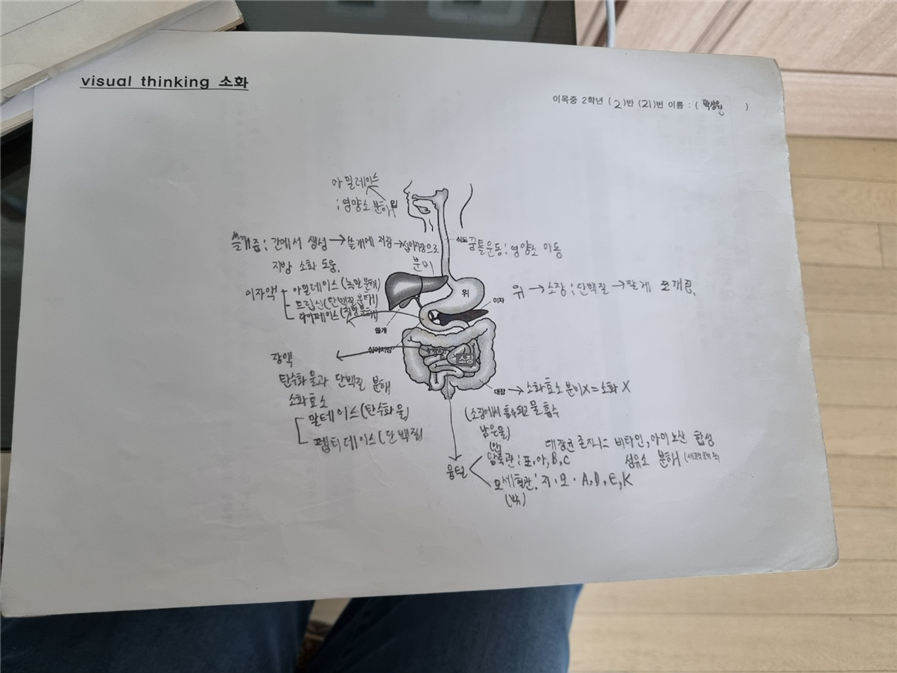 visual thinking 소화
이목중 2학년 (2)반 (21)번 이름 : ( )
아밀레이스
:영양소 분해
쓸개즙 : 간에서 생성 → 쓸개에 저장 → 십이지장으로
분비
지방 소화 도움.
식도 꿈틀운동 ; 영양소 이동
이자액
아밀레이스 (녹말 분해)
트립신 (단백질 분해)
라이페이스 (지방 분해)
위
이자
위 → 소장 ; 단백질 → 잘게 쪼개짐.
쓸개
십이지장
소장
장액
탄수화물과 단백질 분해
소화효소
말테이스 (탄수화물)
펩티데이스 (단백질)
대장 → 소화효소 분비X = 소화 X
(소장에서 흡수되고 물 흡수
남은물)
대장균 존재 비타민, 아미노산 합성
섬유소 분해
융털
(안)
암죽관 : 포, 아, B, C
모세혈관 : 지 · 모 · A, D, E, K
(밖)